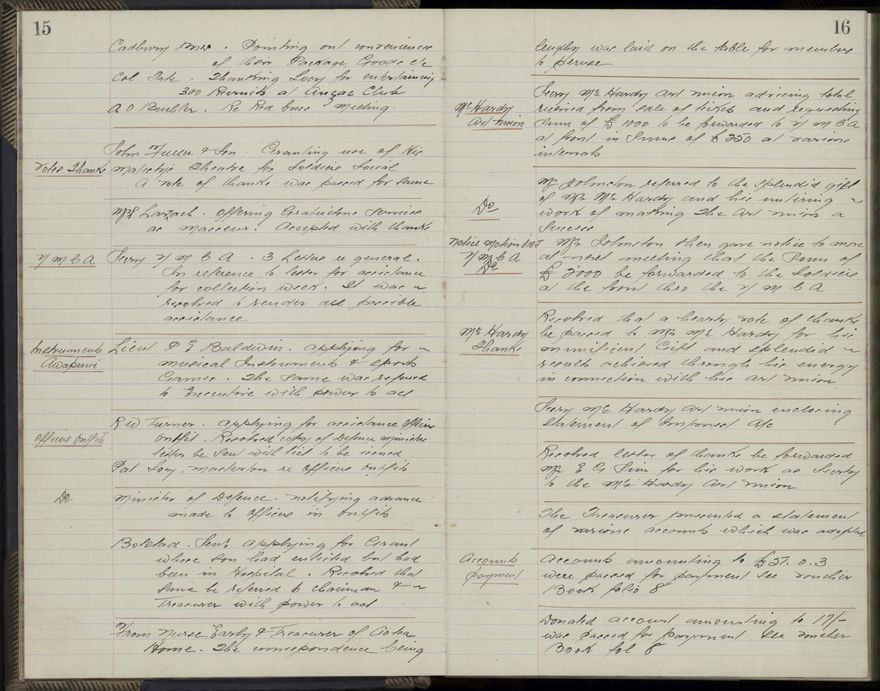 15
Cadbury Bros. Pointing out convenience
of their Package Goods etc
Col Pat. Thanking Socy for entertaining
300 Permits at Anzac Club
A O Builder. Re Red Cross Meeting.
Votes Thanks
John Fuller & Son. Granting use of His
Majestys Theatre for Soldiers Social
A vote of thanks was passed for same
Mr Lazach. Offering Gratuitous Services
as masseur. Accepted with thanks
Y M C A
Secry Y M C A. 3 Letters re general.
In reference to letter for assistance
for collection week. It was
resolved to render all possible
assistance
Instruments
Awapuni
Lieut P G Baldwin. applying for
musical Instruments & sports
Games. The same was referred
to Executive with power to act
Officers Outfits
R W Turner. applying for assistance Officers
Outfit. Resolved copy of Defence Ministers
letter be sent with list to be issued
Pat Socy. Masterton re Officers Outfits
Do
Minister of Defence. notifying advance
made to Officers in outfits
Bolstad. Senr applying for Grant
whose son had enlisted but had
been in Hospital. Resolved that
same be referred to chairman &
Treasurer with power to act
From Nurse Early & Treasurer of Aotea
Home. The correspondence being
16
lengthy was laid on the table for members
to peruse
McHardy
Art Union
Secry McHardy Art Union advising total
received from sale of tickets and requesting
sum of £1000 to be forwarded to Y M C A
at front in sums of £250 at various
intervals
Do
Mr Johnston referred to the splendid gift
of Mr McHardy and his untiring
work of making the Art Union a
Success
Notice Motion
Y M C A
Do
Mr Johnston then gave notice to move
at next meeting that the sum of
£2000 be forwarded to the Soldiers
at the front thro the Y M C A
McHardy
Thanks
Resolved that a hearty vote of thanks
be passed to Mr McHardy for his
munificent Gift and splendid
results achieved through his energy
in connection with his art union
Secry McHardy Art Union enclosing
Statement of Imprest A/c
Resolved letter of thanks be forwarded
Mr E G Sim for his work as Secrty
to the McHardy Art Union
The Treasurer presented a statement
of various accounts which was adopted
Accounts
payment
Accounts amounting to 0.3
were passed for payment See voucher
Book folio 8
Donated account amounting to 17/-
was passed for payment See voucher
Book fol 8